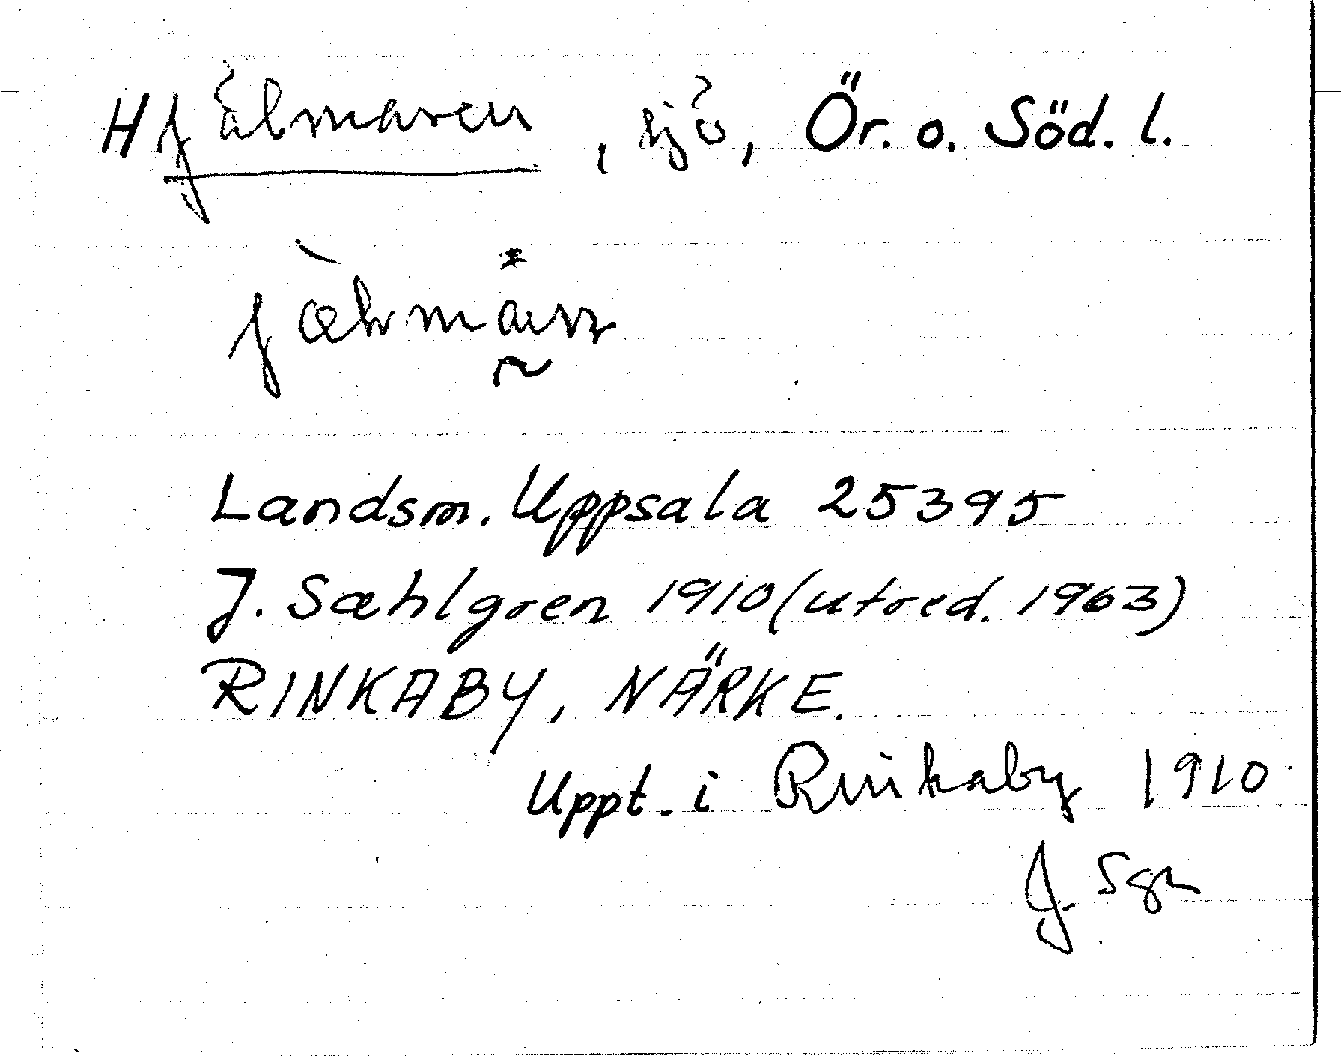 Hjälmaren, sjö, Ör. o. Söd. l.
Landsm. Uppsala 25395
J. Sahlgren 1910 (utred. 1963)
RINKABY, NÄRKE.
Uppt. i Rinkaby 1910
J. Sgn